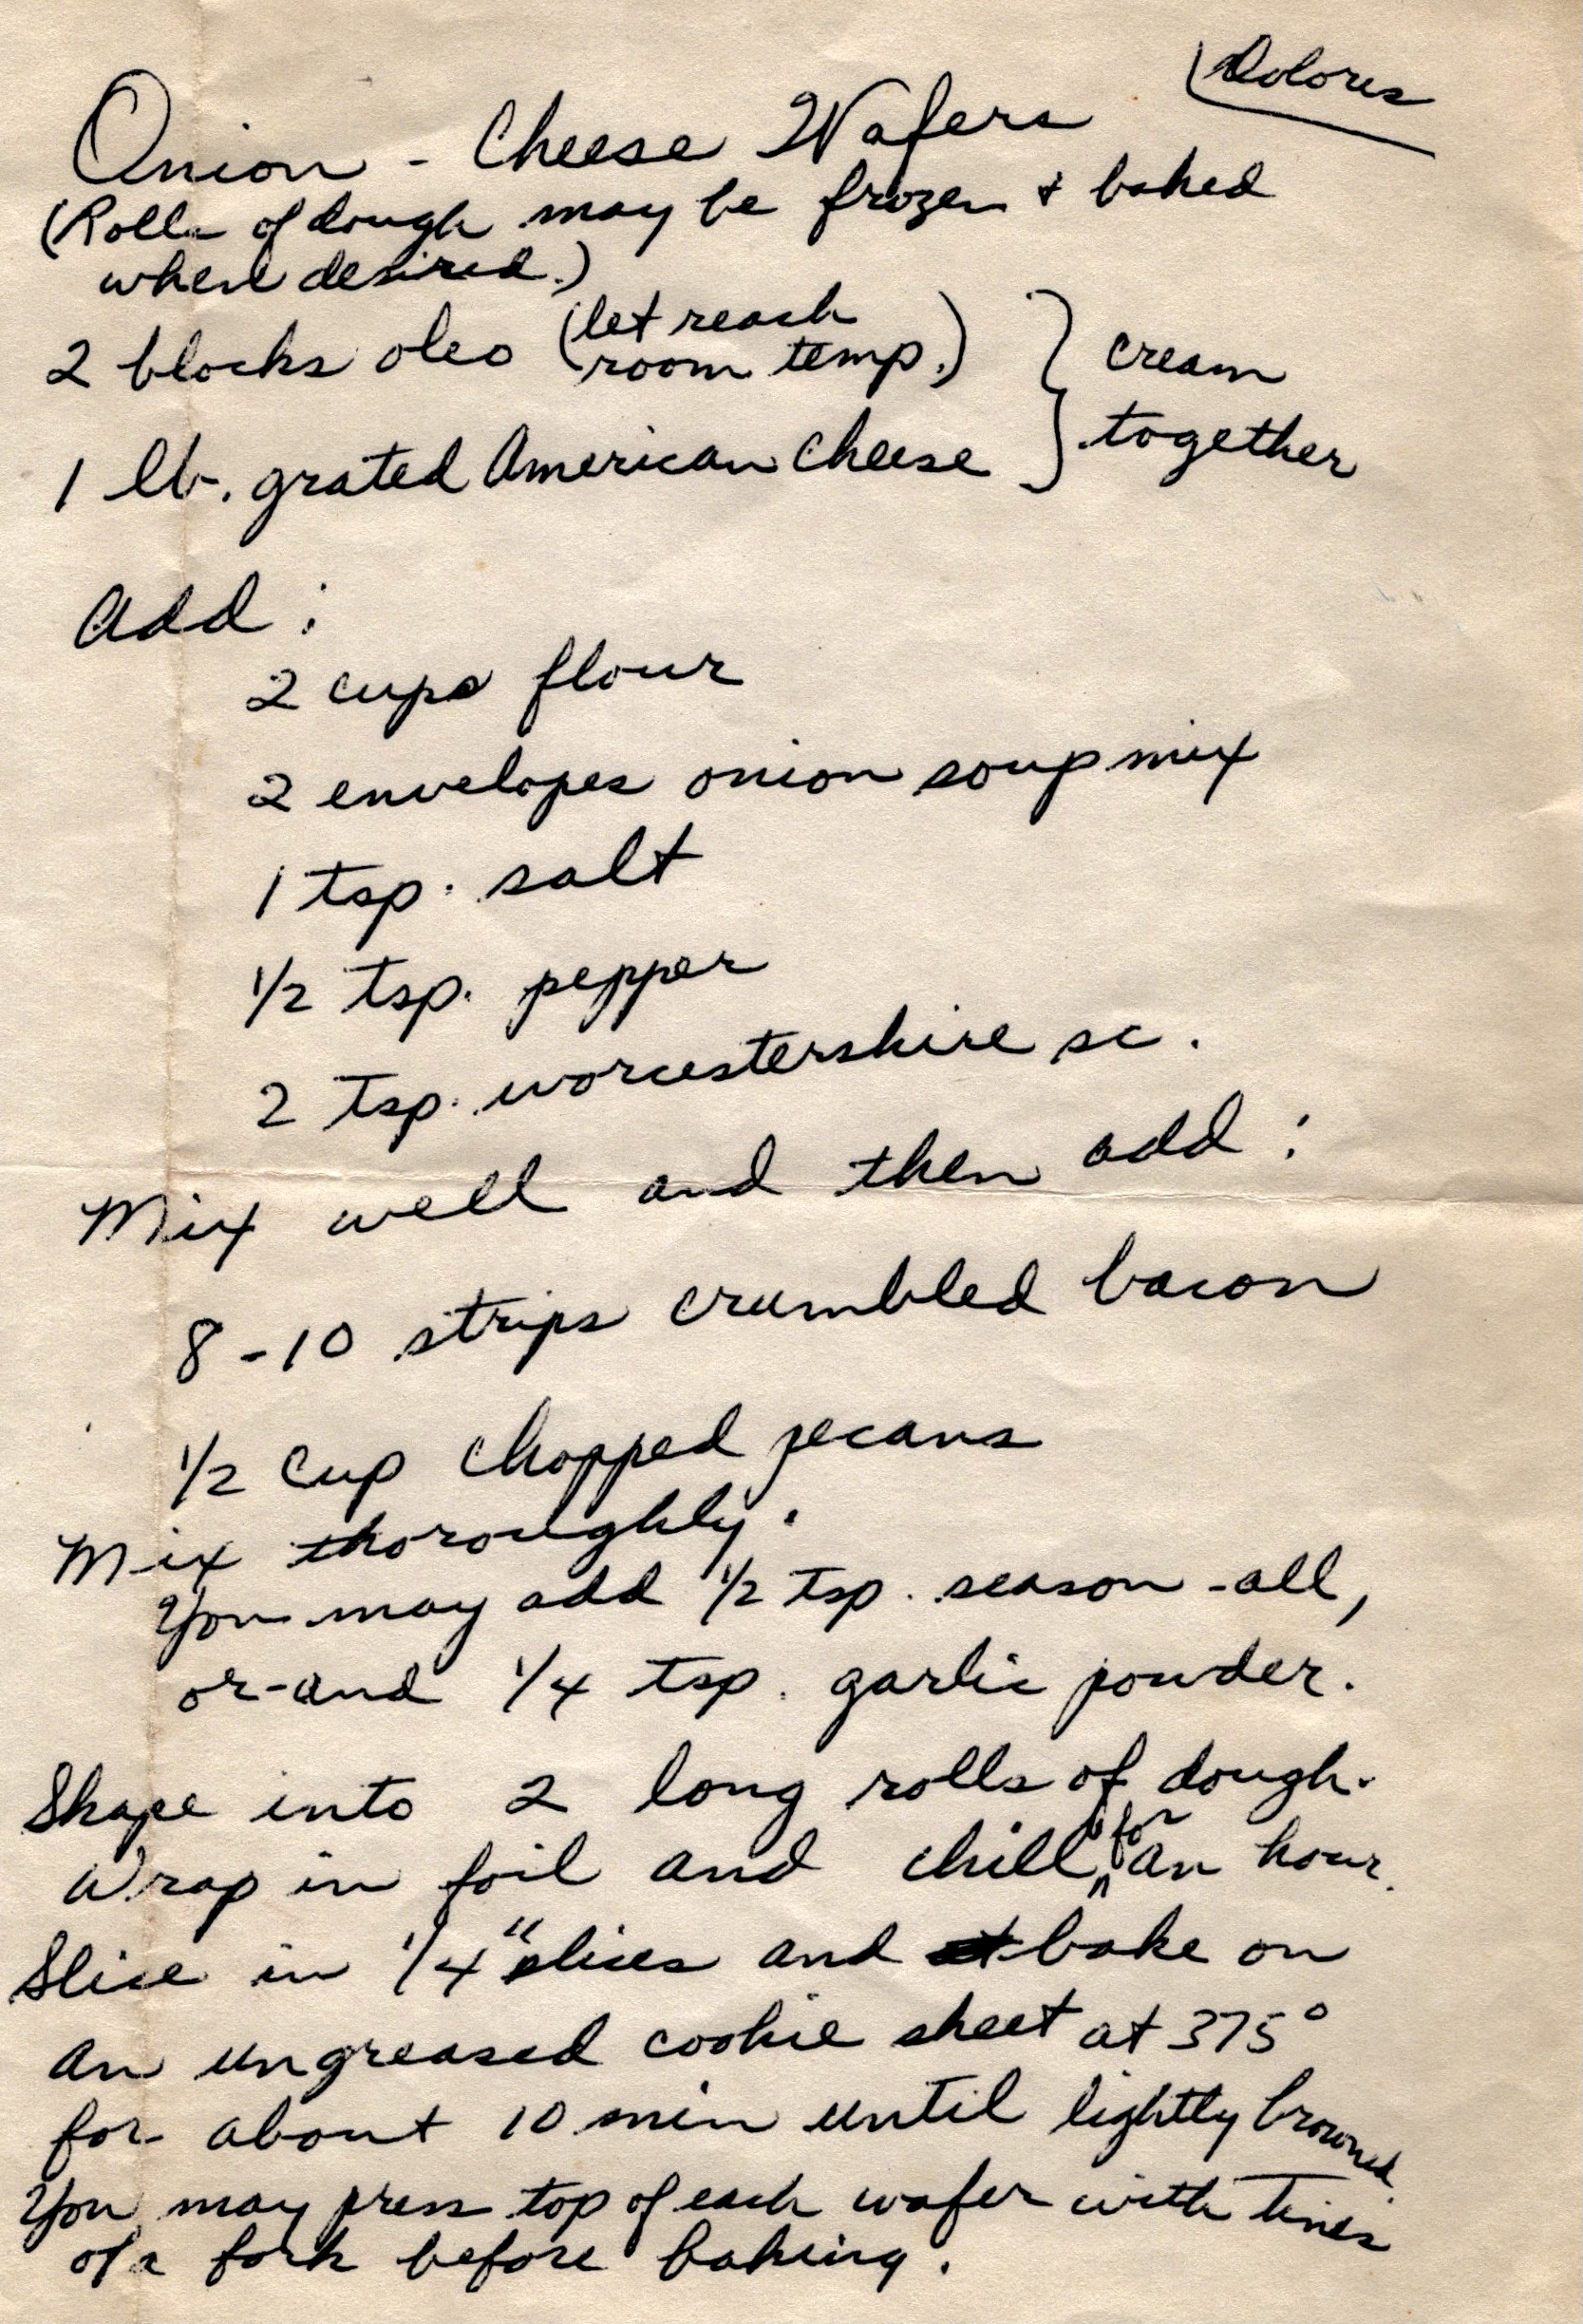 Dolores
Onion - Cheese Wafers
(Rolls of dough may be frozen + baked
when desired.)
2 blocks oleo (let reach
room temp.)
1 lb. grated American Cheese
} cream
together
Add:
2 cups flour
2 envelopes onion soup mix
1 tsp. salt
1/2 tsp. pepper
2 tsp. worcestershire sc.
Mix well and then add:
8-10 strips crumbled bacon
1/2 cup chopped pecans
Mix thoroughly.
You may add 1/2 tsp. season-all,
or-and 1/4 tsp. garlic powder.
Shape into 2 long rolls of dough.
Wrap in foil and chill for an hour.
Slice in 1/4" slices and bake on
an ungreased cookie sheet at 375°
for about 10 min until lightly browned.
You may press top of each wafer with tines
of a fork before baking.